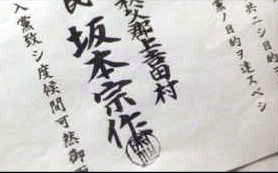 共ニシ目的
黨ノ目的ヲ達スベシ
秩父郡上吉田村
民 坂本宗作
入黨致シ度候間可然御